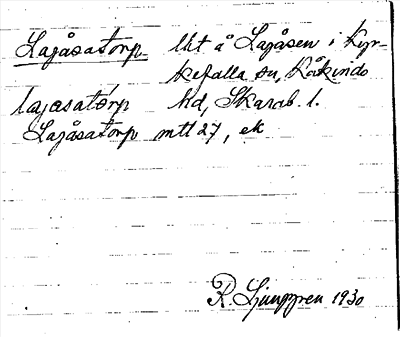 Lagåsatorp lht å Lagåsen i Kyr-
kefalla sn, Kåkinds
lagasatårp hd, Skarab. l.
Lagåsatorp mtl 27, ek
R. Ljunggren 1930